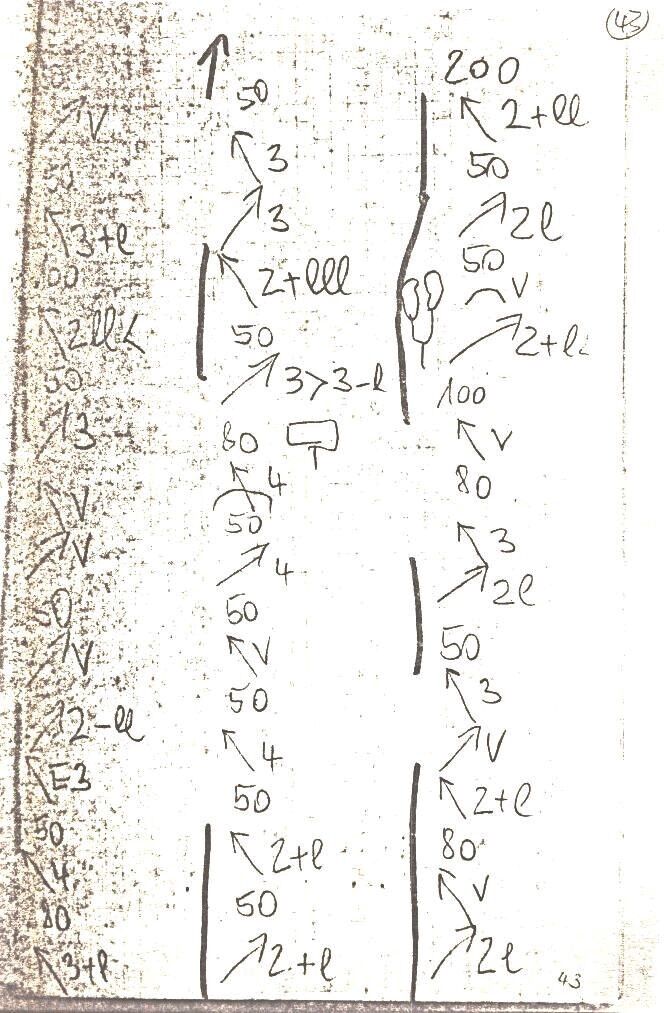 43
V
50
3+l
2ll<
50
3
V
V
50
V
2-ll
E3
50
4
80
3+l
50
3
3
2+lll
50
3>3-l
80
4
50
4
50
V
50
4
50
2+l
50
2+l
200
2+ll
50
2l
50
V
2+l
100
V
80
3
2l
50
3
V
2+l
80
V
2l
43